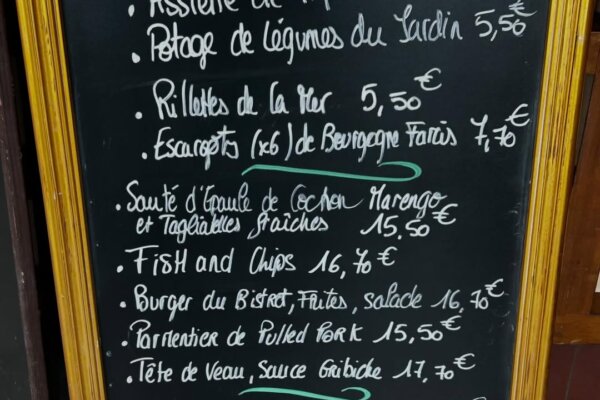 . Assiette de
. Potage de Légumes du Jardin 5,50€
. Rillettes de la Mer 5,50€
. Escargots (x6) de Bourgogne Farcis 7,70€
. Sauté d'Epaule de Cochon Marengo
et Tagliatelles fraîches 15,50€
. Fish and Chips 16,70€
. Burger du Bistrot, Frites, salade 16,70€
. Parmentier de Pulled Pork 15,50€
. Tête de veau, Sauce Gribiche 17,70€